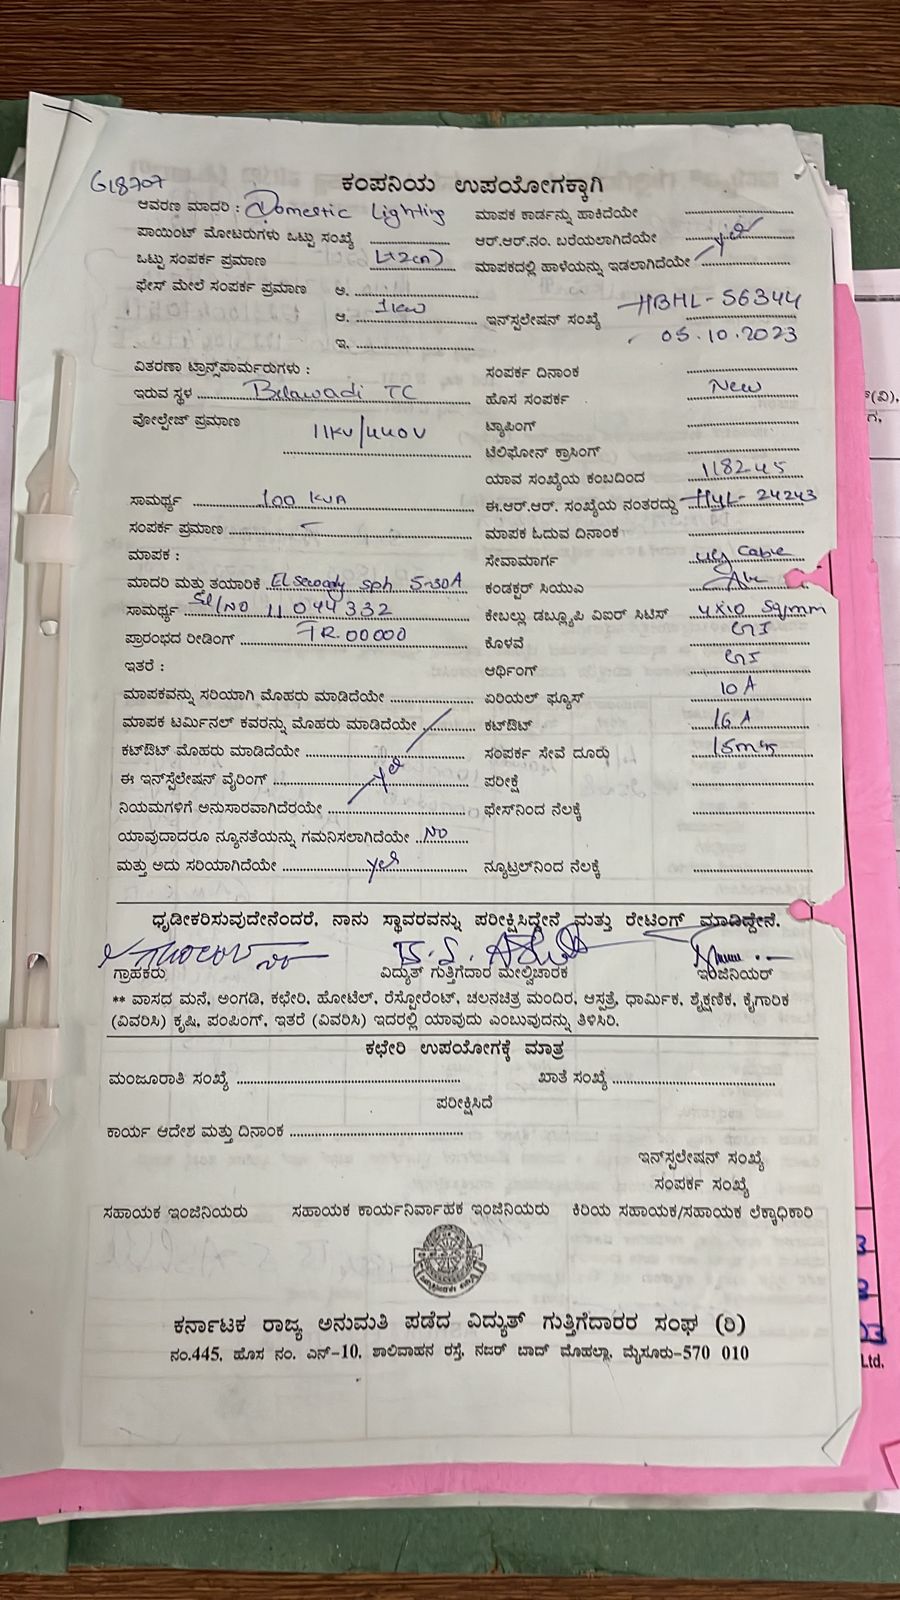 G18707
ಕಂಪನಿಯ ಉಪಯೋಗಕ್ಕಾಗಿ
ಆವರಣ ಮಾದರಿ : Domestic Lighting
ಪಾಯಿಂಟ್ ಮೋಟರುಗಳು ಒಟ್ಟು ಸಂಖ್ಯೆ
ಒಟ್ಟು ಸಂಪರ್ಕ ಪ್ರಮಾಣ
ಫೇಸ್ ಮೇಲೆ ಸಂಪರ್ಕ ಪ್ರಮಾಣ ಅ.
ಆ. 1kw
ಇ.
ವಿತರಣಾ ಟ್ರಾನ್ಸ್‌ಪಾರ್ಮರುಗಳು :
ಇರುವ ಸ್ಥಳ Belawadi TC
ವೋಲ್ಟೇಜ್ ಪ್ರಮಾಣ
11KV/440V
ಸಾಮರ್ಥ್ಯ 100 KVA
ಸಂಪರ್ಕ ಪ್ರಮಾಣ
ಮಾಪಕ :
ಮಾದರಿ ಮತ್ತು ತಯಾರಿಕೆ sph 5-30A
ಸಾಮರ್ಥ್ಯ Sl/No 11044332
ಪ್ರಾರಂಭದ ರೀಡಿಂಗ್ FR 00000
ಇತರೆ :
ಮಾಪಕವನ್ನು ಸರಿಯಾಗಿ ಮೊಹರು ಮಾಡಿದೆಯೇ
ಮಾಪಕ ಟರ್ಮಿನಲ್ ಕವರನ್ನು ಮೊಹರು ಮಾಡಿದೆಯೇ
ಕಟ್‌ಔಟ್ ಮೊಹರು ಮಾಡಿದೆಯೇ
ಈ ಇನ್‌ಸ್ಪೆಲೇಷನ್ ವೈರಿಂಗ್ yes
ನಿಯಮಗಳಿಗೆ ಅನುಸಾರವಾಗಿದೆರಯೇ
ಯಾವುದಾದರೂ ನ್ಯೂನತೆಯನ್ನು ಗಮನಿಸಲಾಗಿದೆಯೇ NO
ಮತ್ತು ಅದು ಸರಿಯಾಗಿದೆಯೇ yes
ಮಾಪಕ ಕಾರ್ಡನ್ನು ಹಾಕಿದೆಯೇ
ಆರ್.ಆರ್.ನಂ. ಬರೆಯಲಾಗಿದೆಯೇ yes
ಮಾಪಕದಲ್ಲಿ ಹಾಳೆಯನ್ನು ಇಡಲಾಗಿದೆಯೇ
ಇನ್‌ಸ್ಪಲೇಷನ್ ಸಂಖ್ಯೆ HBHL-56344
05.10.2023
ಸಂಪರ್ಕ ದಿನಾಂಕ
ಹೊಸ ಸಂಪರ್ಕ New
ಟ್ಯಾಪಿಂಗ್
ಟೆಲಿಫೋನ್ ಕ್ರಾಸಿಂಗ್
ಯಾವ ಸಂಖ್ಯೆಯ ಕಂಬದಿಂದ 118245
ಈ.ಆರ್.ಆರ್. ಸಂಖ್ಯೆಯ ನಂತರದ್ದು HyL-24243
ಮಾಪಕ ಓದುವ ದಿನಾಂಕ
ಸೇವಾಮಾರ್ಗ ug Cable
ಕಂಡಕ್ಟರ್ ಸಿಯುಎ
ಕೇಬಲ್ಲು ಡಬ್ಲ್ಯೂಪಿ ವಿಐರ್ ಸಿಟಿಸ್ 4x10 Sqmm
ಕೊಳವೆ GI
ಆರ್ಥಿಂಗ್ GI
ಏರಿಯಲ್ ಫ್ಯೂಸ್ 10 A
ಕಟ್‌ಔಟ್ 16 A
ಸಂಪರ್ಕ ಸೇವೆ ದೂರು 15mts
ಪರೀಕ್ಷೆ
ಫೇಸ್‌ನಿಂದ ನೆಲಕ್ಕೆ
ನ್ಯೂಟ್ರಲ್‌ನಿಂದ ನೆಲಕ್ಕೆ
ಧೃಡೀಕರಿಸುವುದೇನೆಂದರೆ, ನಾನು ಸ್ಥಾವರವನ್ನು ಪರೀಕ್ಷಿಸಿದ್ದೇನೆ ಮತ್ತು ರೇಟಿಂಗ್ ಮಾಡಿದ್ದೇನೆ.
ಗ್ರಾಹಕರು ವಿದ್ಯುತ್ ಗುತ್ತಿಗೆದಾರ ಮೇಲ್ವಿಚಾರಕ ಇಂಜಿನಿಯರ್
** ವಾಸದ ಮನೆ, ಅಂಗಡಿ, ಕಛೇರಿ, ಹೋಟೆಲ್, ರೆಸ್ಟೋರೆಂಟ್, ಚಲನಚಿತ್ರ ಮಂದಿರ, ಆಸ್ಪತ್ರೆ, ಧಾರ್ಮಿಕ, ಶೈಕ್ಷಣಿಕ, ಕೈಗಾರಿಕ
(ವಿವರಿಸಿ) ಕೃಷಿ, ಪಂಪಿಂಗ್, ಇತರೆ (ವಿವರಿಸಿ) ಇದರಲ್ಲಿ ಯಾವುದು ಎಂಬುವುದನ್ನು ತಿಳಿಸಿರಿ.
ಕಛೇರಿ ಉಪಯೋಗಕ್ಕೆ ಮಾತ್ರ
ಮಂಜೂರಾತಿ ಸಂಖ್ಯೆ ಖಾತೆ ಸಂಖ್ಯೆ
ಪರೀಕ್ಷಿಸಿದೆ
ಕಾರ್ಯ ಆದೇಶ ಮತ್ತು ದಿನಾಂಕ
ಇನ್‌ಸ್ಪಲೇಷನ್ ಸಂಖ್ಯೆ
ಸಂಪರ್ಕ ಸಂಖ್ಯೆ
ಸಹಾಯಕ ಇಂಜಿನಿಯರು ಸಹಾಯಕ ಕಾರ್ಯನಿರ್ವಾಹಕ ಇಂಜಿನಿಯರು ಕಿರಿಯ ಸಹಾಯಕ/ಸಹಾಯಕ ಲೆಕ್ಕಾಧಿಕಾರಿ
ಕರ್ನಾಟಕ ರಾಜ್ಯ ಅನುಮತಿ ಪಡೆದ ವಿದ್ಯುತ್ ಗುತ್ತಿಗೆದಾರರ ಸಂಘ (ರಿ)
ನಂ.445, ಹೊಸ ನಂ. ಎನ್-10, ಶಾಲಿವಾಹನ ರಸ್ತೆ, ನಜರ್ ಬಾದ್ ಮೊಹಲ್ಲಾ, ಮೈಸೂರು-570 010
Ltd.